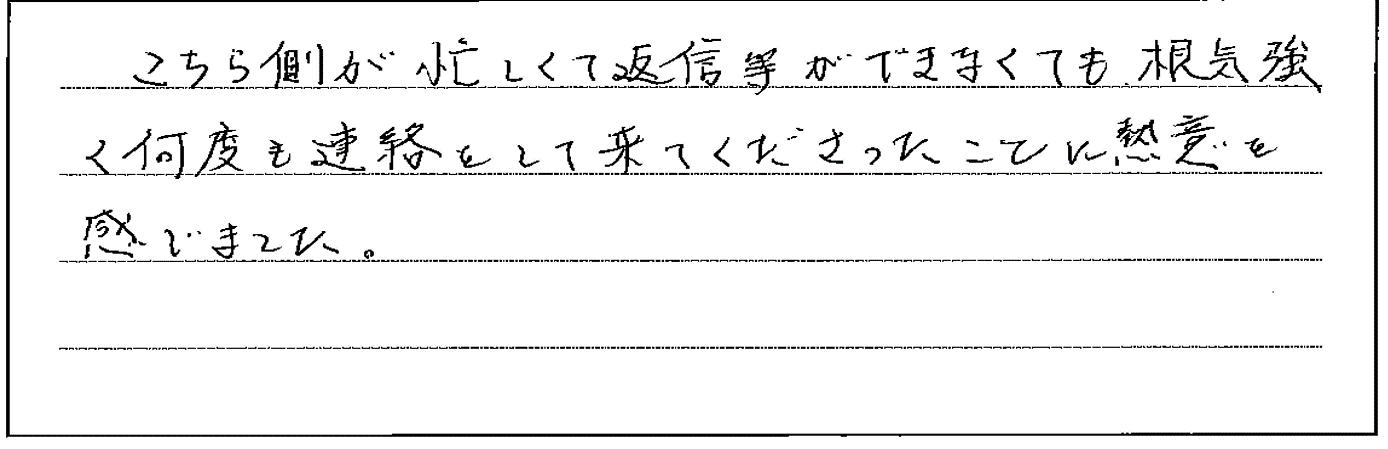 こちら側が忙しくて返信等ができなくても根気強
く何度も連絡をして来てくださったことに熱意を
感じました。